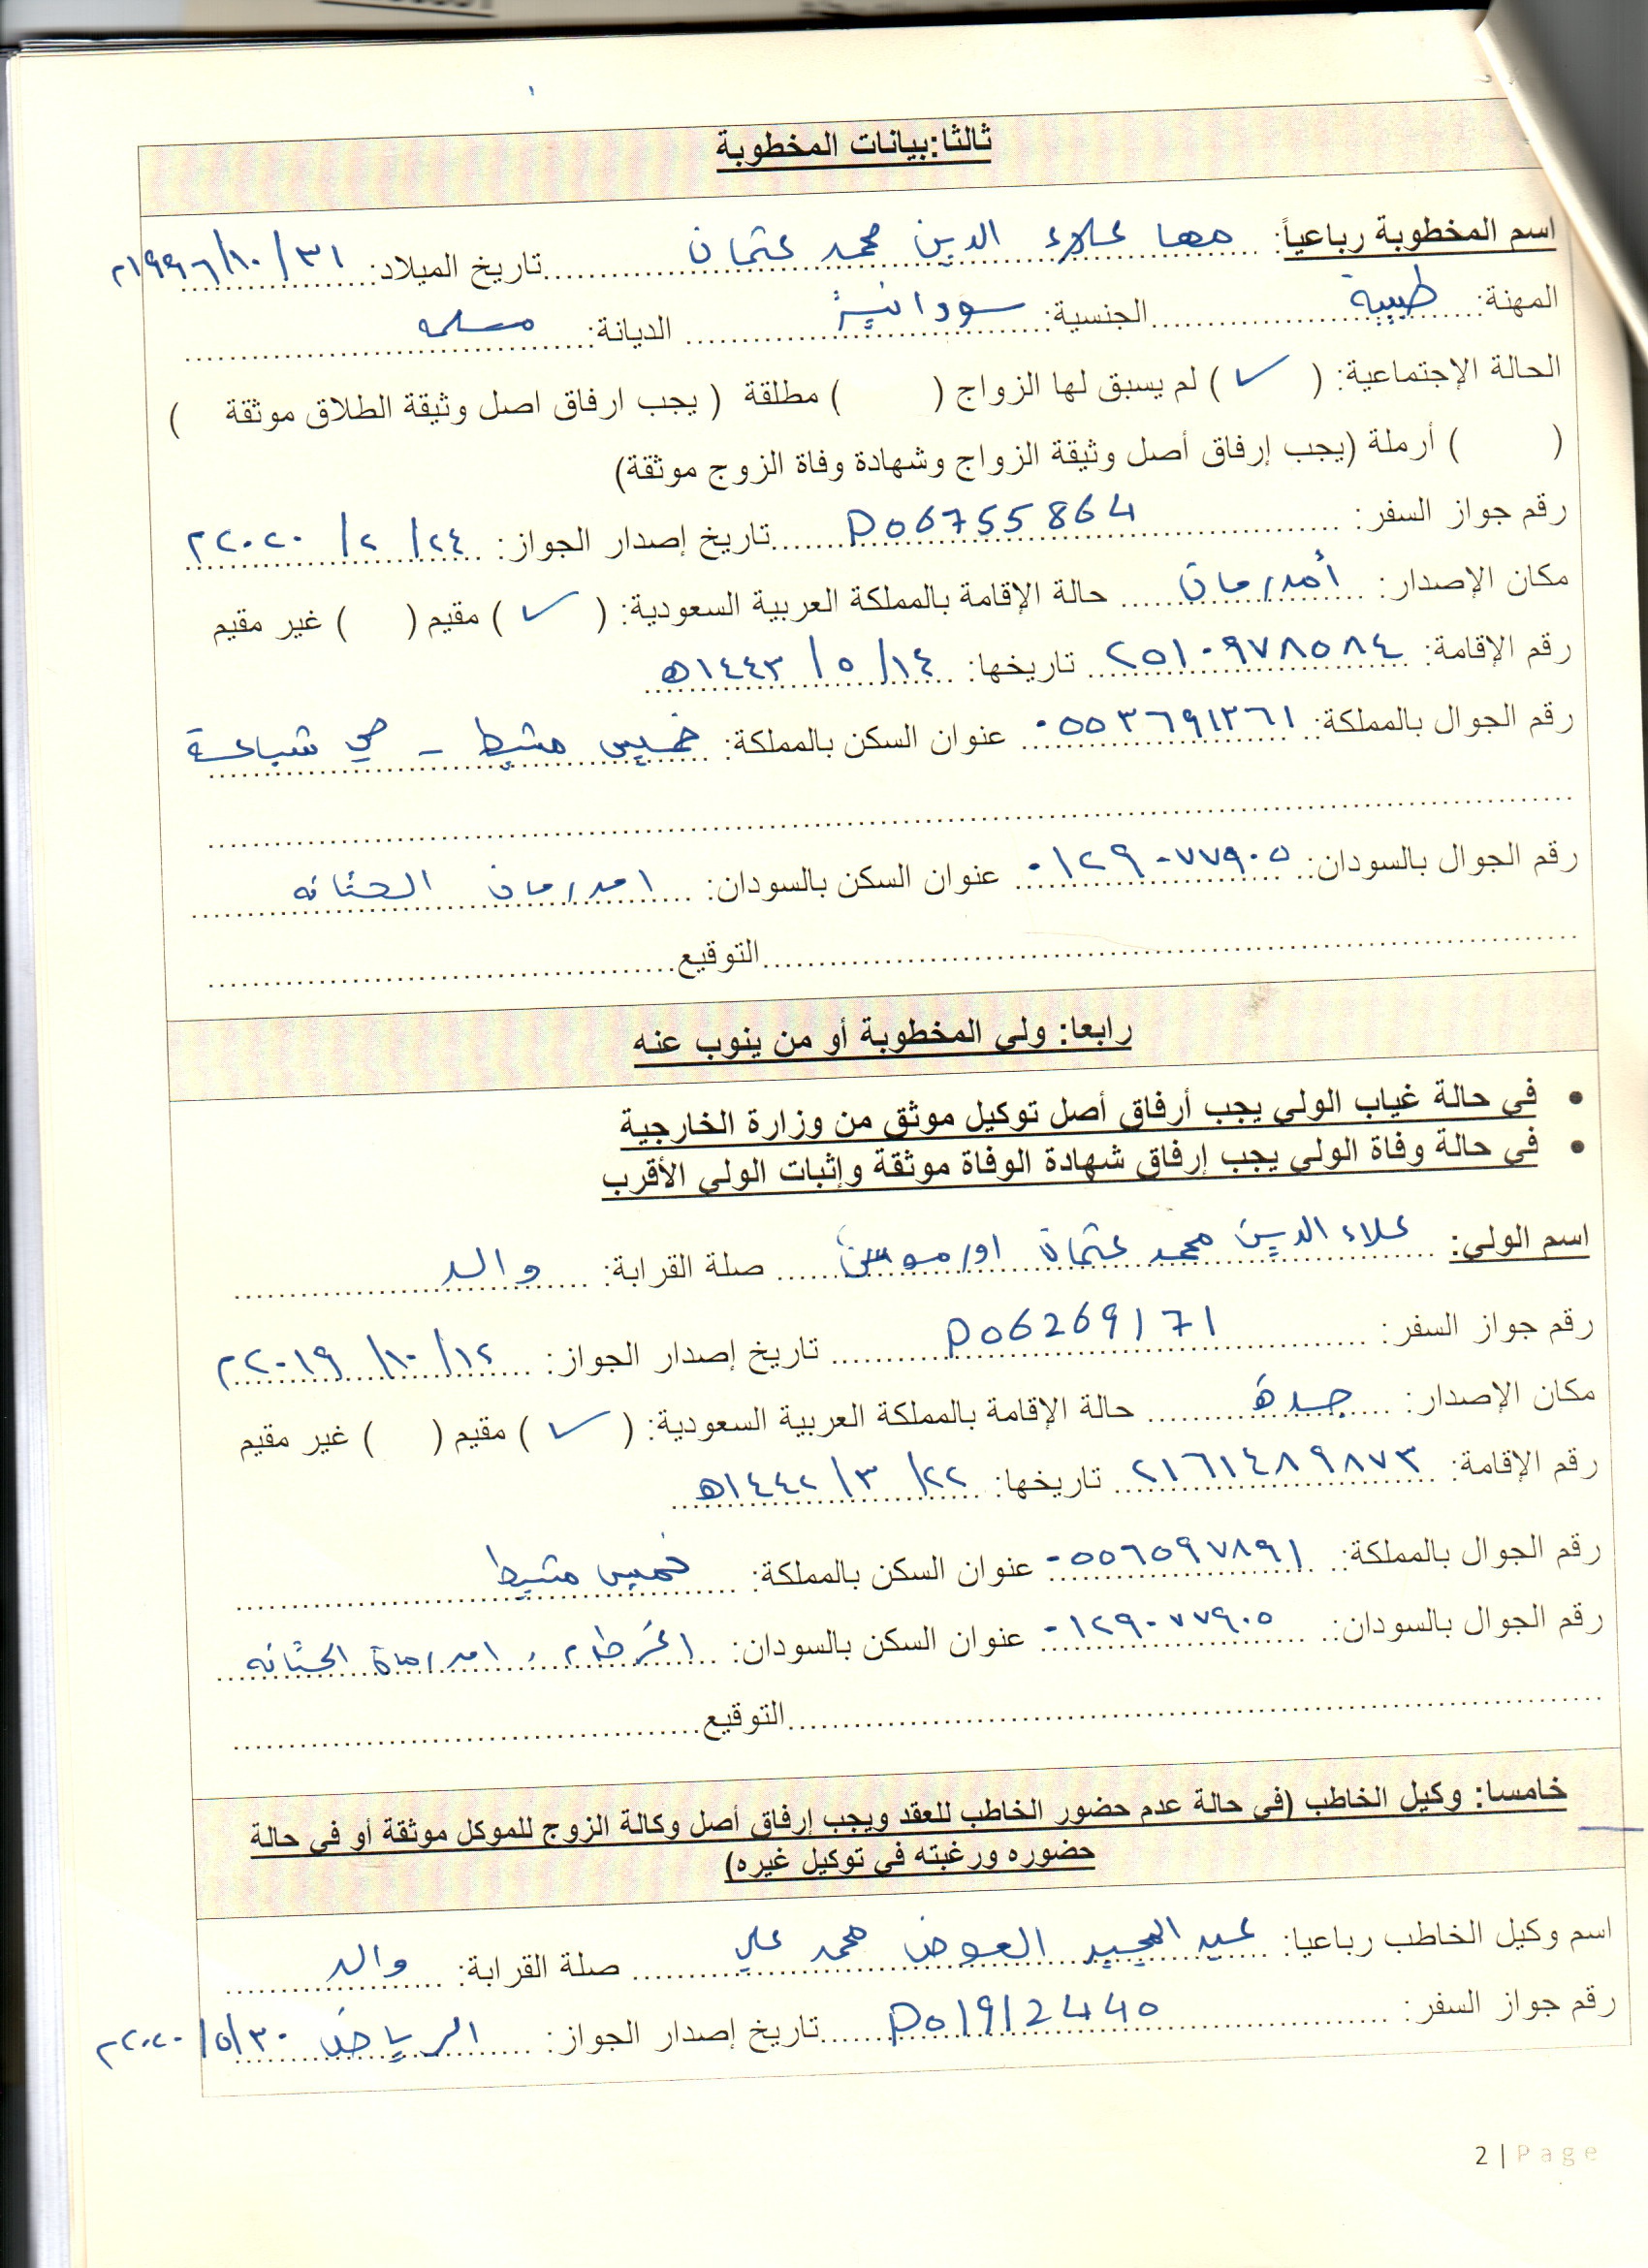 ثالثا:بيانات المخطوبة
اسم المخطوبة رباعياً: مها علاء الدين محمد عثمان تاريخ الميلاد: ٣١/١٠/١٩٩٦م
المهنة: طبيبة الجنسية: سودانية الديانة: مسلمه
الحالة الإجتماعية: ( ✓ ) لم يسبق لها الزواج ( ) مطلقة ( يجب ارفاق اصل وثيقة الطلاق موثقة )
( ) أرملة (يجب إرفاق أصل وثيقة الزواج وشهادة وفاة الزوج موثقة)
رقم جواز السفر: P06755864 تاريخ إصدار الجواز: ٢٤/ ٢/ ٢٠٢٠م
مكان الإصدار: أمدرمان حالة الإقامة بالمملكة العربية السعودية: ( ✓ ) مقيم ( ) غير مقيم
رقم الإقامة: ٢٥١٠٩٧٨٥٨٤ تاريخها: ١٤/ ٥/ ١٤٤٣ه
رقم الجوال بالمملكة: ٠٥٥٣٦٩١٣٦١ عنوان السكن بالمملكة: خميس مشيط - حي شباعة
رقم الجوال بالسودان: ٠١٢٩٠٧٧٩٠٥ عنوان السكن بالسودان: امدرمان الحتانه
التوقيع
رابعا: ولي المخطوبة أو من ينوب عنه
• في حالة غياب الولي يجب أرفاق أصل توكيل موثق من وزارة الخارجية
• في حالة وفاة الولي يجب إرفاق شهادة الوفاة موثقة وإثبات الولي الأقرب
اسم الولي: علاء الدين محمد عثمان صلة القرابة: والد
رقم جواز السفر: P06269171 تاريخ إصدار الجواز: ١٢/ ١٠/ ٢٠١٩م
مكان الإصدار: جدة حالة الإقامة بالمملكة العربية السعودية: ( ✓ ) مقيم ( ) غير مقيم
رقم الإقامة: ٢١٦١٤٨٩٨٧٣ تاريخها: ٢٢/ ٣/ ١٤٤٢ه
رقم الجوال بالمملكة: ٠٥٥٦٥٩٧٨٩١ عنوان السكن بالمملكة: خميس مشيط
رقم الجوال بالسودان: ٠١٢٩٠٧٧٩٠٥ عنوان السكن بالسودان: الخرطوم ، امدرمان الحتانه
التوقيع
خامسا: وكيل الخاطب (في حالة عدم حضور الخاطب للعقد ويجب إرفاق أصل وكالة الزوج للموكل موثقة أو في حالة
حضوره ورغبته في توكيل غيره)
اسم وكيل الخاطب رباعيا: عبد المجيد العوض محمد علي صلة القرابة: والد
رقم جواز السفر: P01912440 تاريخ إصدار الجواز: الرياض ٣٠/٥/٢٠٢٠م
2 | Page